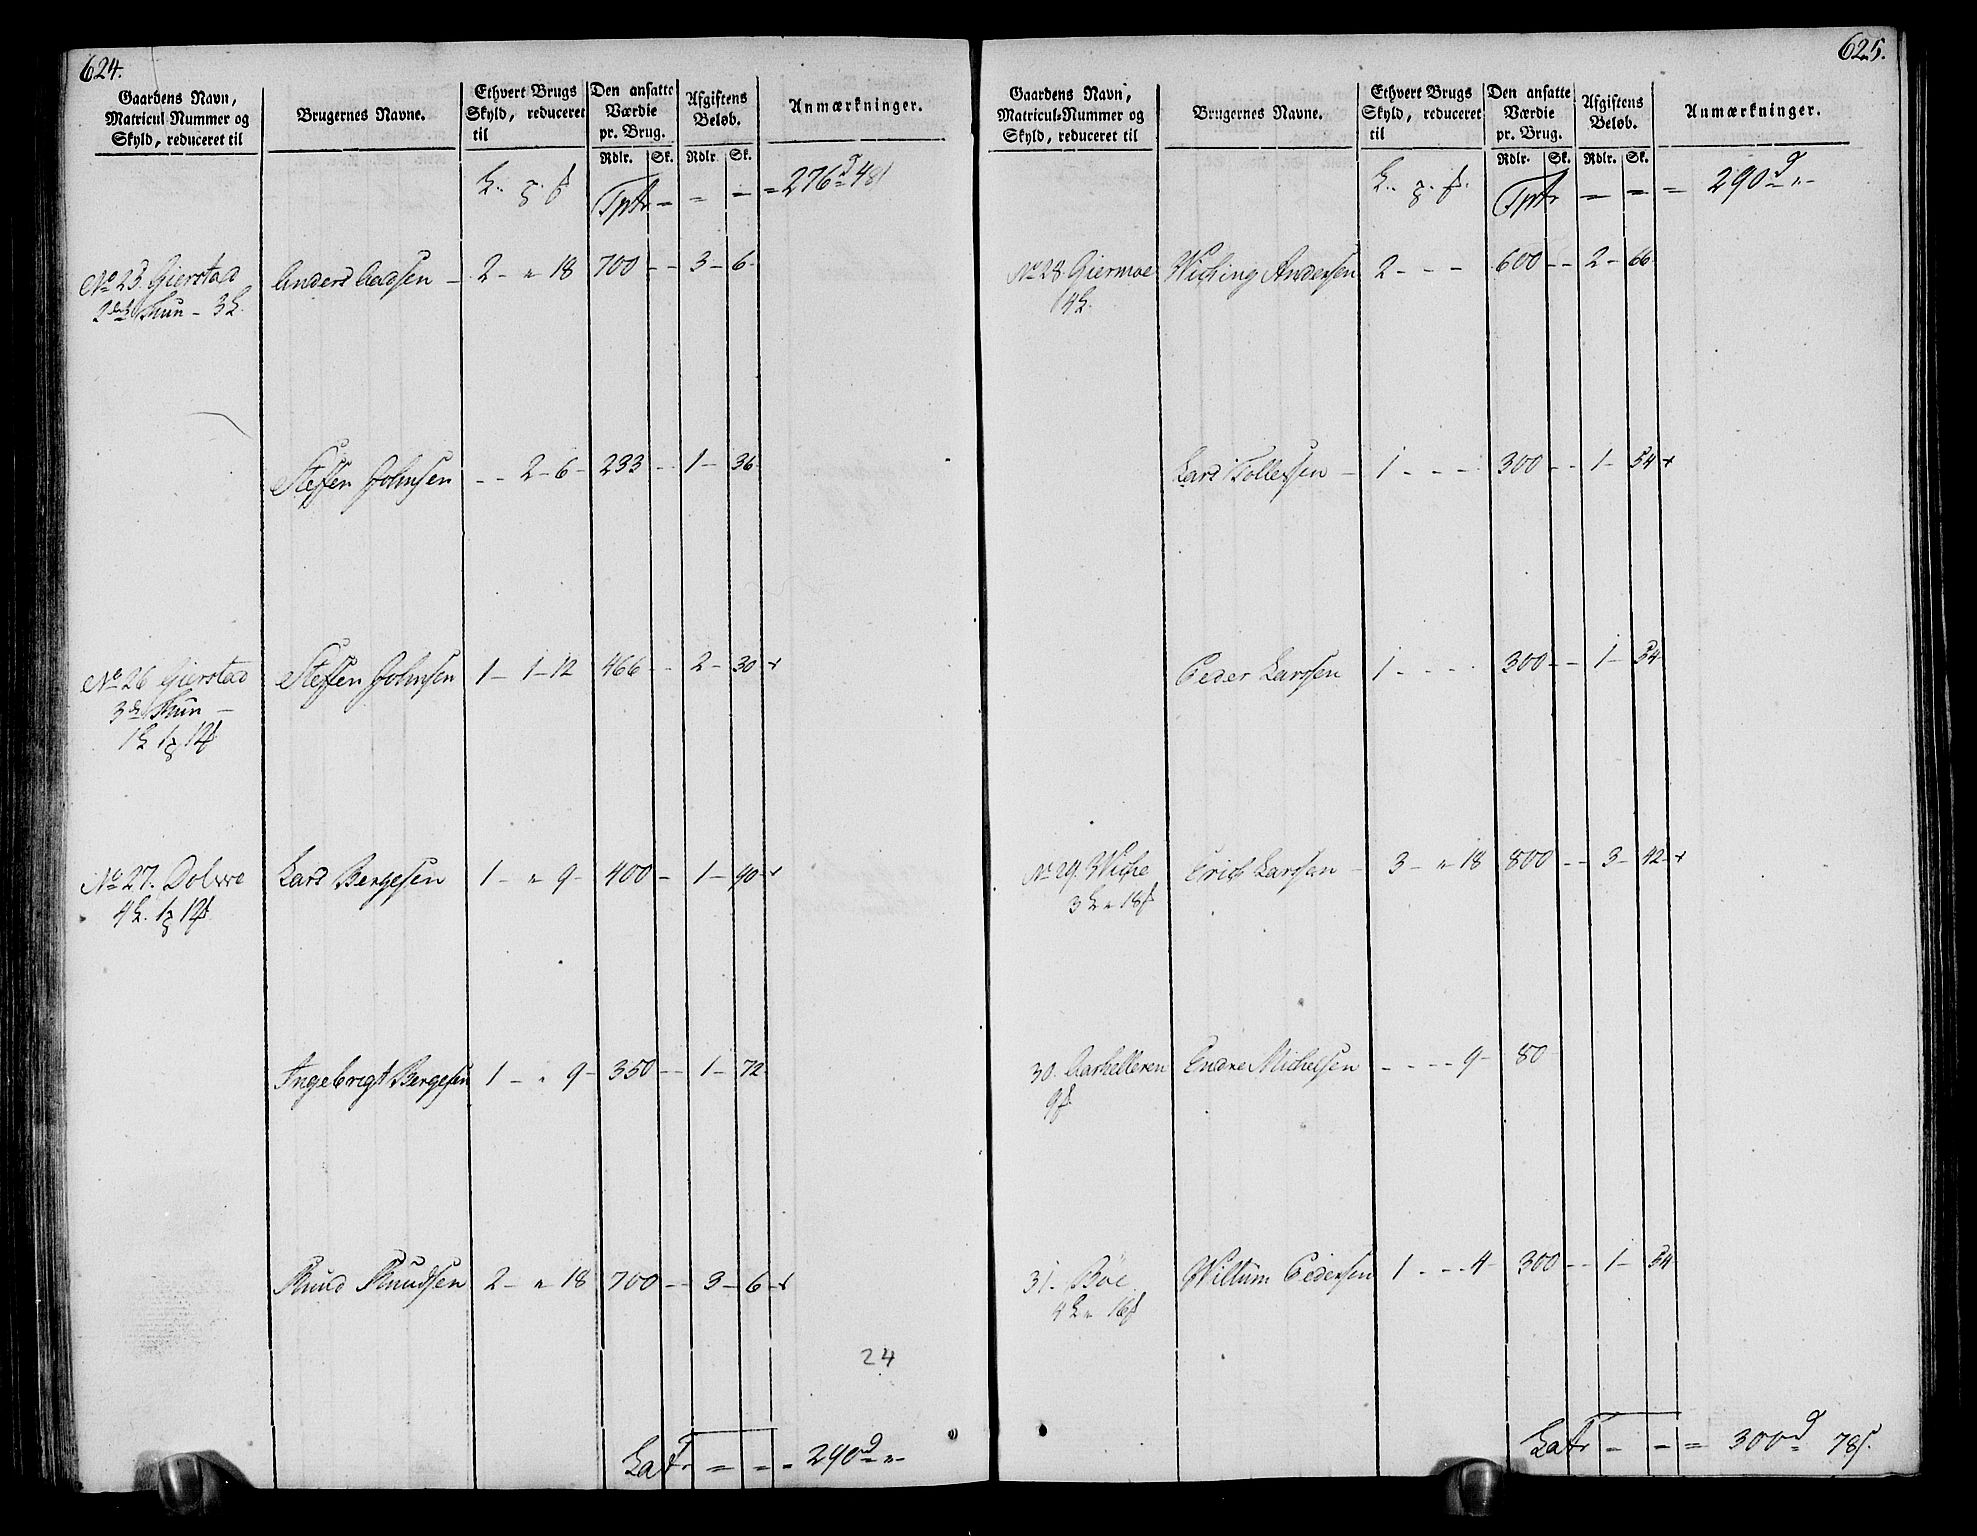 624.
Gaardens Navn, Matricul Nummer og Skyld, reduceret til
Brugernes Navne.
Ethvert Brugs Skyld, reduceret til
Den ansatte Værdie pr. Brug.
Afgiftens Beløb.
Anmærkninger.
Rdlr. Sk. Rdlr. Sk.
Tptr = = = 276 48
No 25 Gierstad Anders Aadsen – 2 – " 18 700 – – 3 – 6
3
Steffen Johnsen – – 2 – 6 – 233 – – 1 – 36
No 26 Gierstad Steffen Johnsen 1 – 1 – 12 466 – – 2 – 30 +
3
1 1 12
No 27. Dolwe Lars Bergesen 1 – " 9 – 400 – 1 – 90 +
4 1 12
Ingebrigt Bergesen 1 – " 9 – 350 – – 1 – 72
Knud Knudsen 2 – " 18 700 – – 3 – 6 – +
24
Latr = = = 290 – " –
625.
Gaardens Navn, Matricul-Nummer og Skyld, reduceret til
Brugernes Navne.
Ethvert Brugs Skyld, reduceret til
Den ansatte Værdie pr. Brug.
Afgiftens Beløb.
Anmærkninger.
Rdlr. Sk. Rdlr. Sk.
Tptr = = = 290 " –
No 28 Giermoe Wiching Andersen 2 – – – 600 – – 2 – 66
4
Lars Tollefsen – 1 – – – 300 – – 1 – 54 +
Peder Larssen 1 – – – 300 – – 1 – 54
No 29. Wiche Erich Larssen – 3 – " 18 800 – – 3 – 42 – +
3 " 18
30. Aarhelleren Endre Michelsen – – – – 9 – 80
9
31. Bøe Willum Pedersen 1 – – – 4 – 300 – – 1 – 54
4 " 16
Latr = = = 300 78